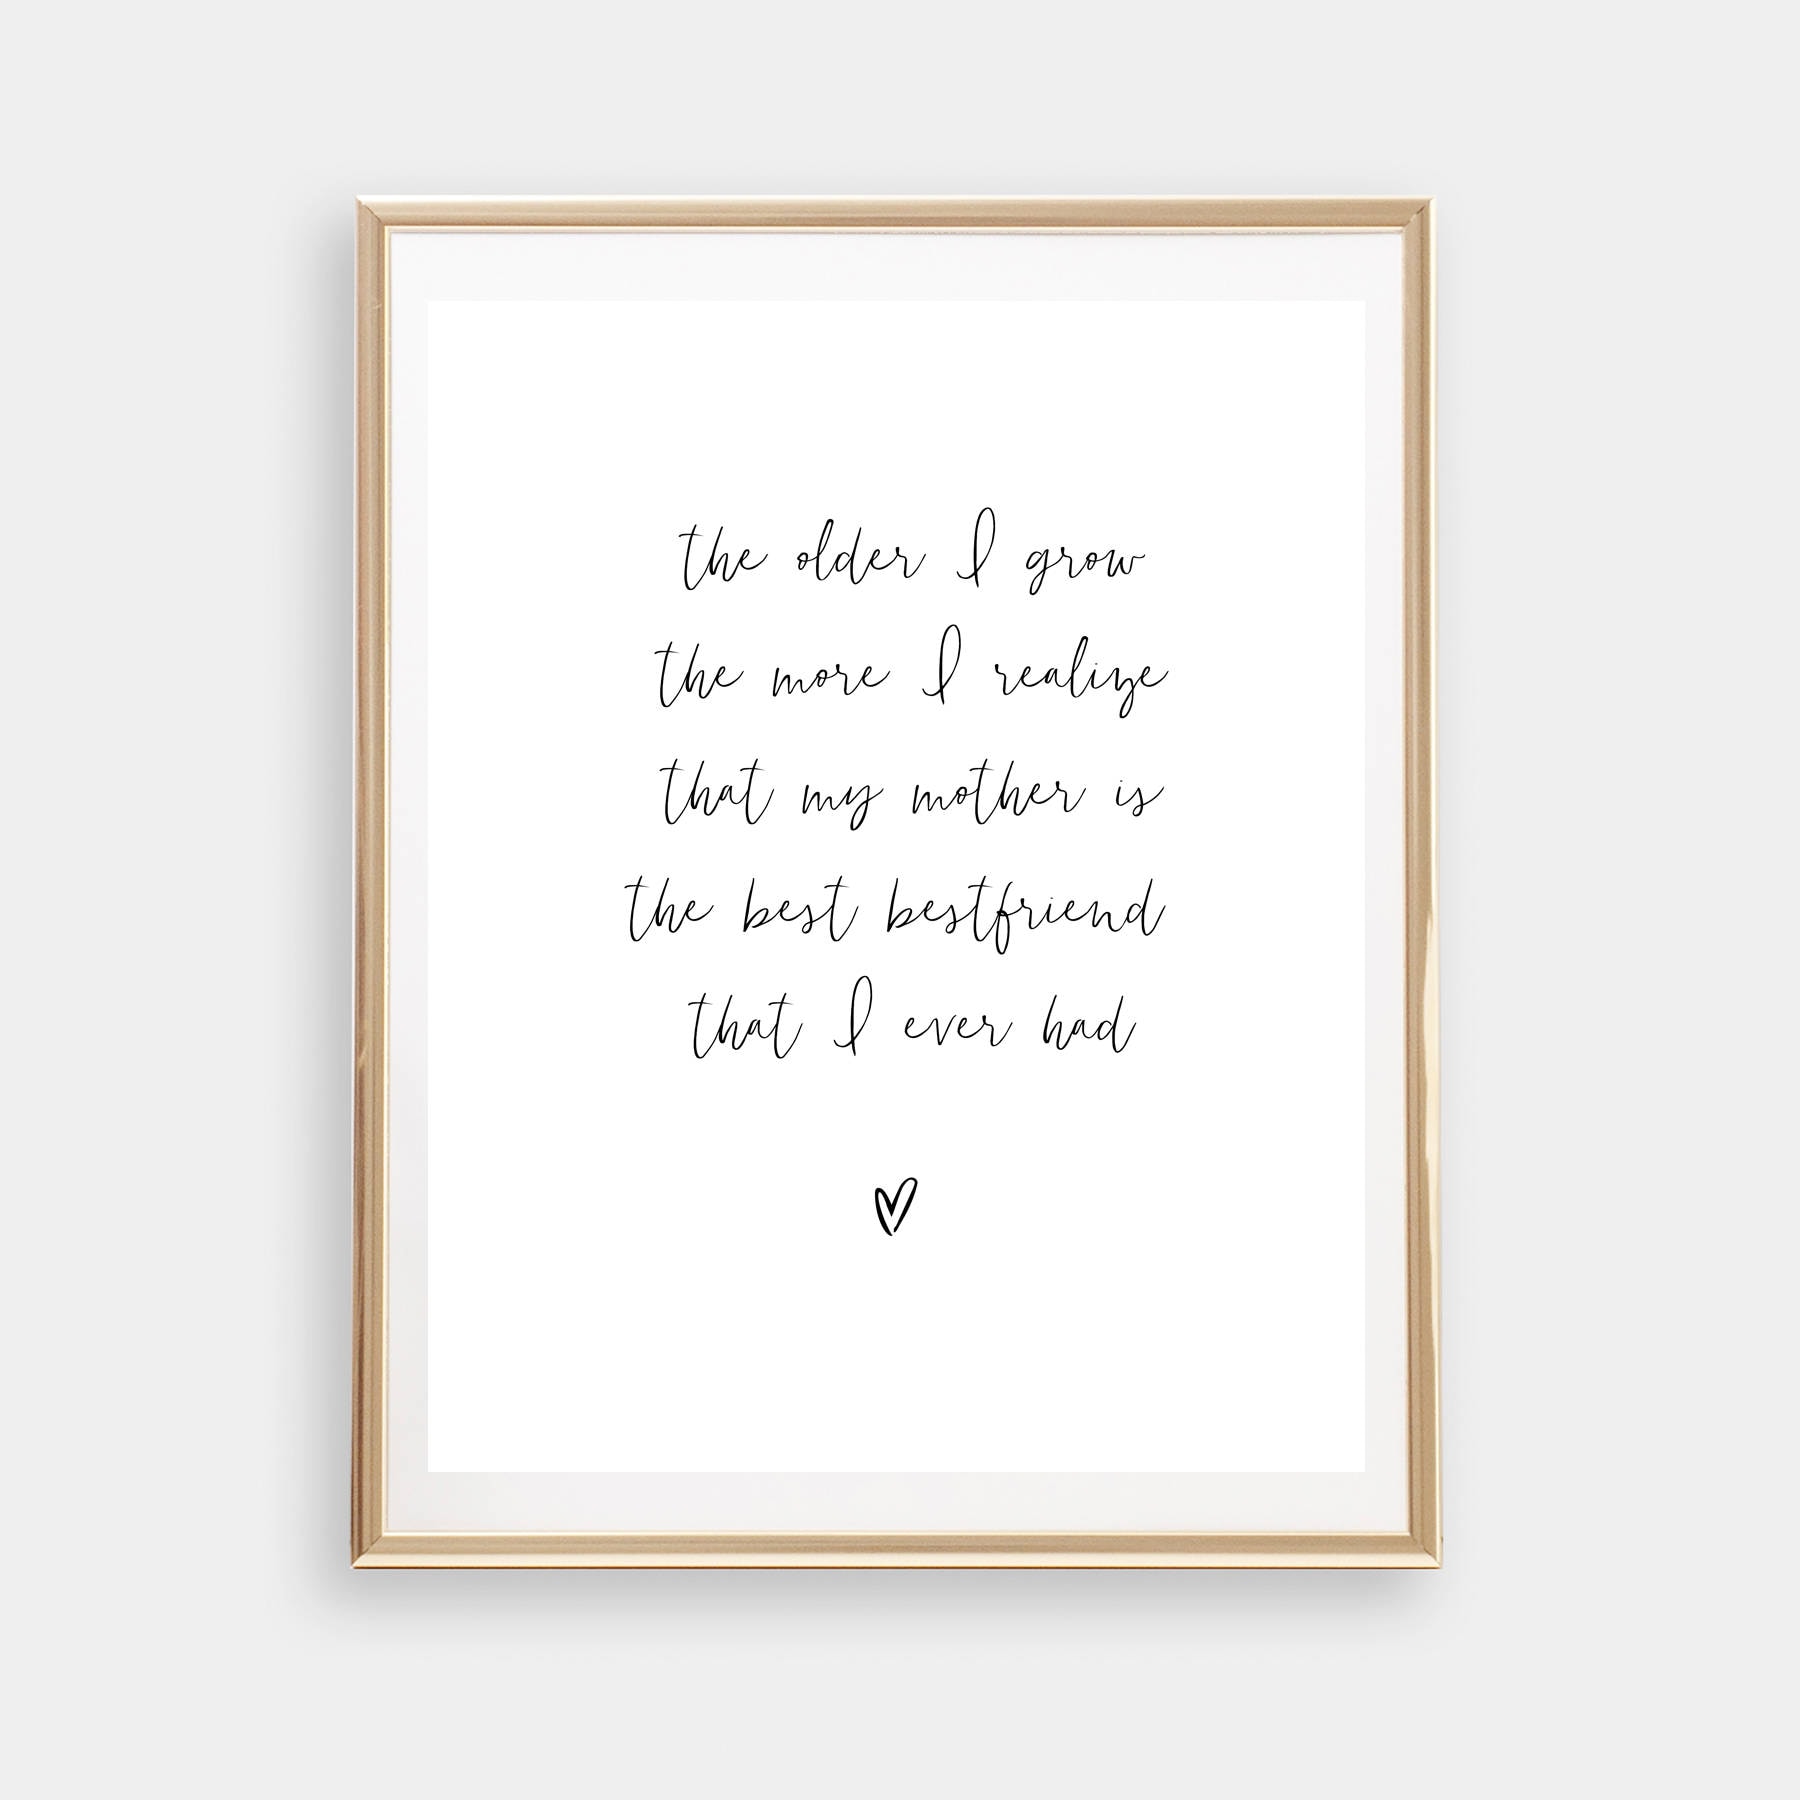 the older I grow
the more I realize
that my mother is
the best bestfriend
that I ever had